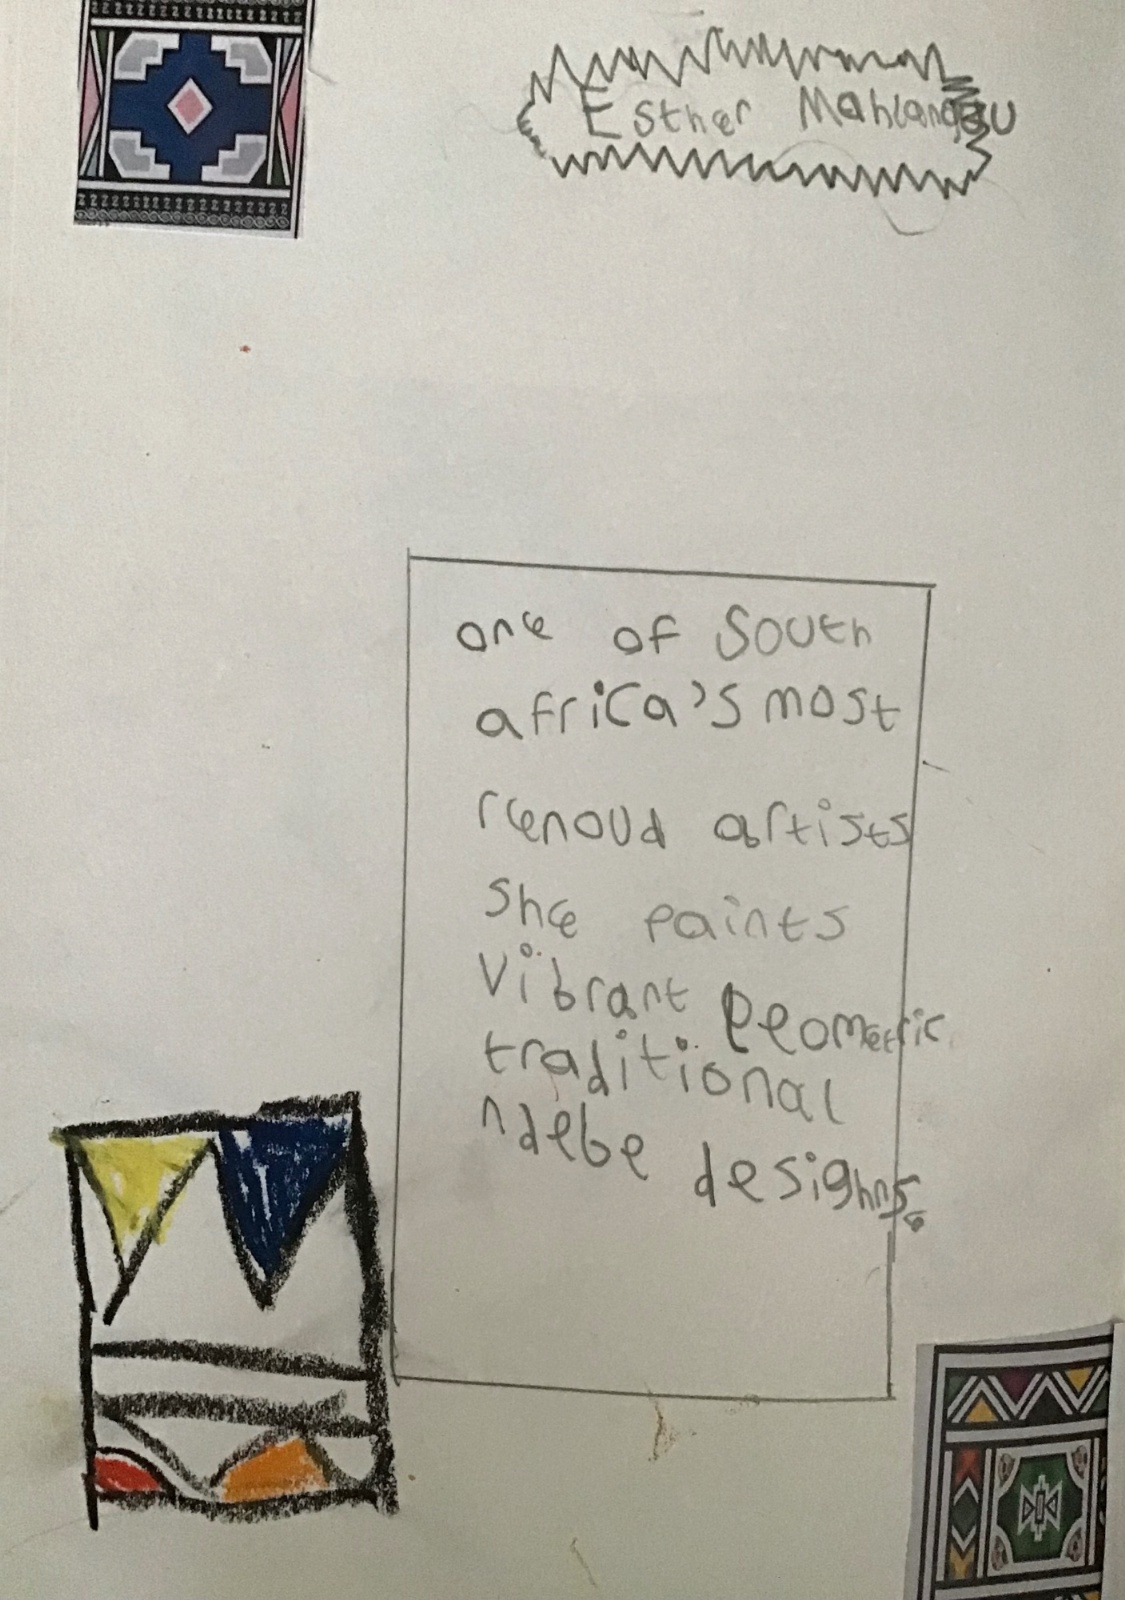 Esther Mahlangu
one of South
africa's most
renoud artists
she paints
Vibrant geometric
traditional
ndebe designs.